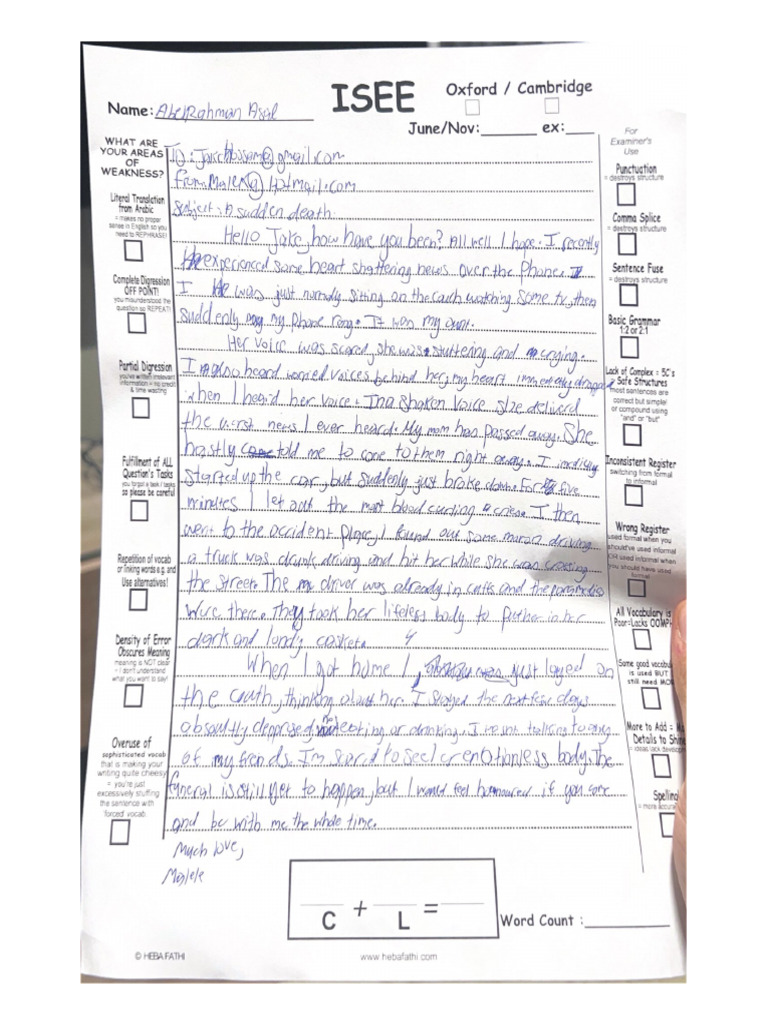 ISEE
Oxford / Cambridge
Name: AbelRahman Assal
June/Nov: ex:
WHAT ARE
YOUR AREAS
OF
WEAKNESS?
Literal Translation
from Arabic
= makes no proper
sense in English so you
need to REPHRASE!
Complete Digression
OFF POINT!
you misunderstood the
question so REPEAT!
Partial Digression
you've written irrelevant
information = no credit
& time wasting
Fulfillment of ALL
Question's Tasks
you forgot a task / tasks
so please be careful
Repetition of vocab
or linking words e.g. and
Use alternatives!
Density of Error
Obscures Meaning
meaning is NOT clear
= I don't understand
what you want to say!
Overuse of
sophisticated vocab
that is making your
writing quite cheesy
= you're just
excessively stuffing
the sentence with
'forced' vocab.
To: @gmail.com
from: @hotmail.com
Subject: A sudden death
Hello Jake, how have you been? All well I hope. I recently
experienced some heart shattering news over the phone.
I was just normally sitting on the couch watching some tv, then
suddenly my phone rang. It was my aunt.
Her voice was scared, she was stuttering and crying.
I also heard worried voices behind her, my heart immediatly dropped
when I heard her voice. In a shaken voice she delivered
the worst news I ever heard. My mom has passed away. She
hastly told me to come to them right away. I
started up the car, but suddenly just broke down. For five
minutes I let out the most blood curdling I then
went to the accident place, I found out some moron driving
a truck was drunk driving and hit her while she was crossing
the street. The driver was already in cuffs and the
were there. They took her lifeless body to put her in her
dark and casket.
When I got home I, just layed on
the couth, thinking about her. I stayed the next few days
absoutly not eating or drinking. I talking to any
of my friends. I'm scared to see her body. The
funeral is still yet to happen, but I would feel honoured if you came
and be with me the whole time.
Much love,
For
Examiner's
Use
Punctuation
= destroys structure
Comma Splice
= destroys structure
Sentence Fuse
= destroys structure
Basic Grammar
1:2 or 2:1
Lack of Complex = 5C's
Safe Structures
most sentences are
correct but simple/
or compound using
"and" or "but"
Inconsistent Register
switching from formal
to informal
Wrong Register
used formal when you
should've used informal
OR used informal when
you should have used
formal
All Vocabulary is
Poor=Lacks OOMPH
Some good vocabul
is used BUT
still need MO
More to Add =
Details to Shi
= ideas lack develop
Spelling
= more accura
C + L =
Word Count :
© HEBA FATHI
www.hebafathi.com